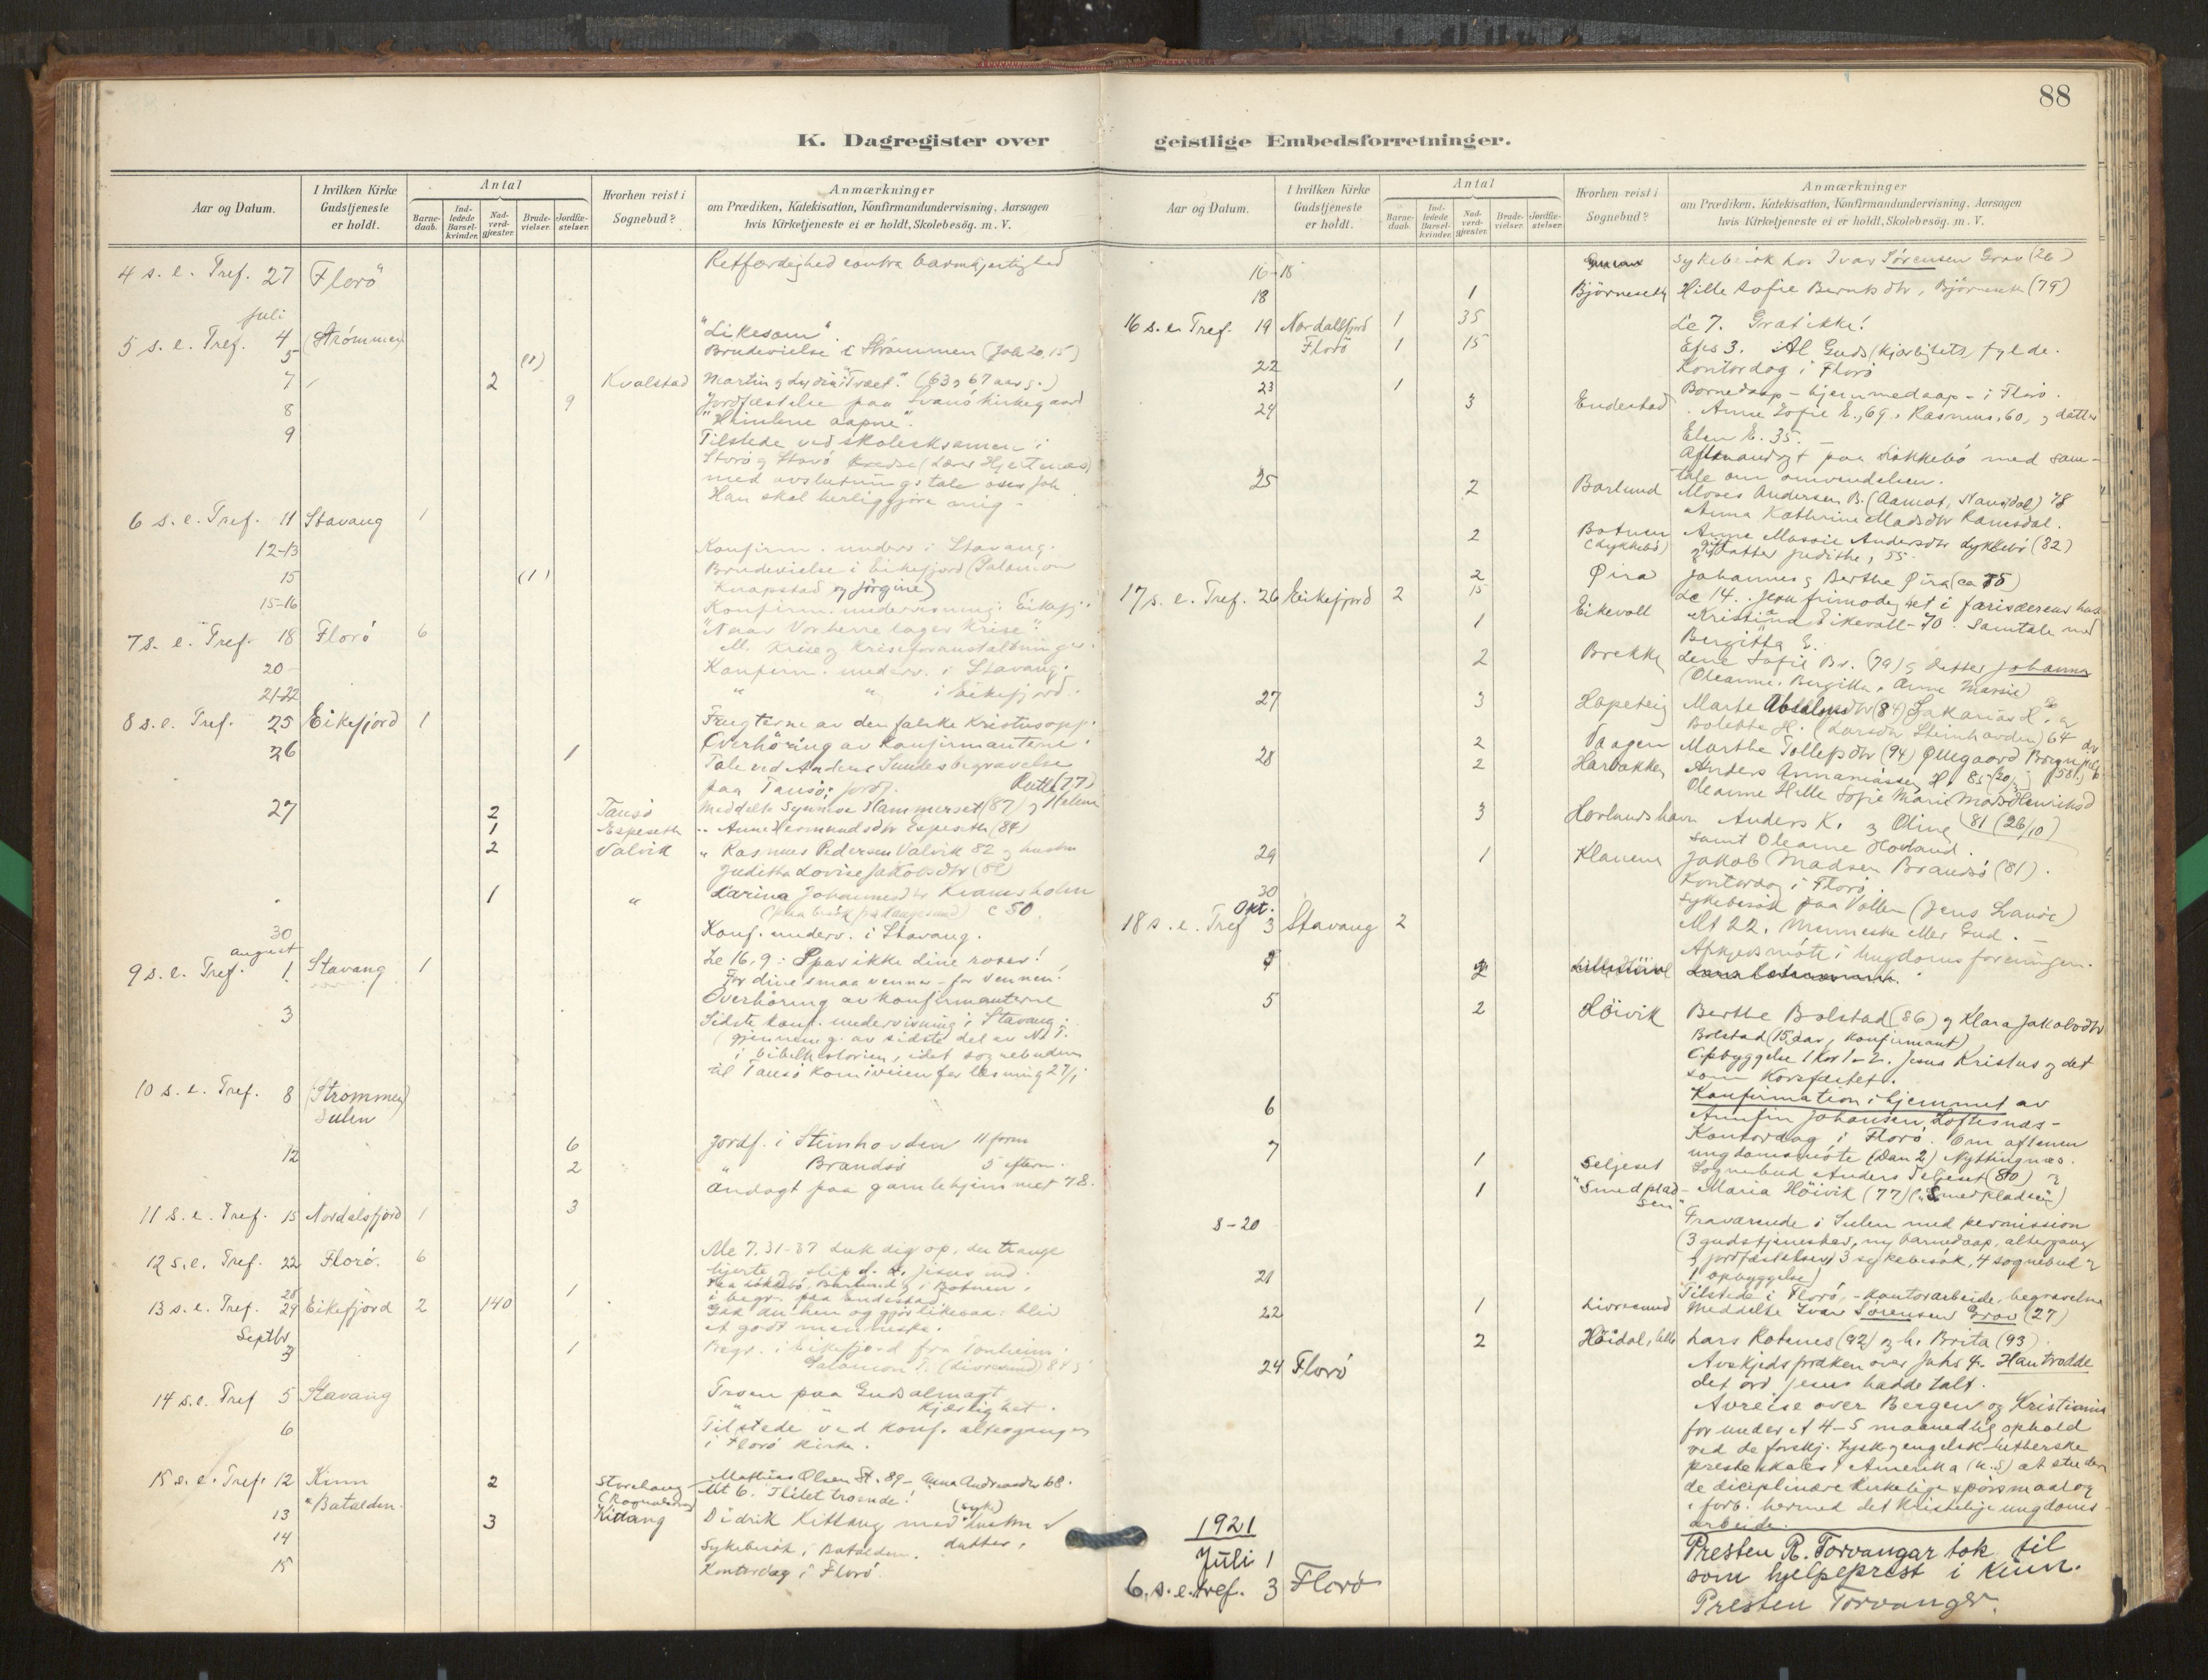 88
K. Dagregister over geistlige Embedsforretninger.
Aar og Datum.
I hvilken Kirke Gudstjeneste er holdt.
Antal
Barnedaab.
Indledede Barselkvinder.
Nadverdgjæster.
Brudevielser.
Jordfæstelser.
Hvorhen reist i Sognebud?
Anmærkninger
om Prædiken, Katekisation, Konfirmandundervisning, Aarsagen
hvis Kirketjeneste ei er holdt, Skolebesög. m. V.
4 s. e. Tref. 27 Florö Retfærdighed contra barmhjertighed
Juli
5 s. e. Tref. 4 (Strømmen) "Likesom".
5 (1) Brudevielse i Strømmen (Joh 20,15)
7 2 Kvalstad Martin og Lydia "Tvæt." (63 og 67 aar g.)
8 9 Jordfæstelse paa Svanö kirkegaard
"Himlene aapne".
9 Tilstede ved skoleeksamen i
med avslutningstale over Joh
Han skal herliggjöre mig -
6 s. e. Tref. 11 Stavang 1
12-13 Konfirm. underv i Stavang.
15 (1) Brudevielse i Eikefjord (Salamon
Knapstad og Jörgine)
15-16 Konfirm. undervisning i Eikefj.
7 s. e. Tref. 18 Florö 6 "Naar Vorherre lager Krise":
20 Konfirm. underv. i Stavang.
21-22 " " i Eikefjord.
8 s. e. Tref. 25 Eikefjord 1 Frugterne av den falske Kristusopp.
26 1 Overhöring av Konfirmanterne.
Tale ved Anders Sundes begravelse
paa Tansö; jordf.
27 2 Tansö Meddelte Synneve Hammerset (87) og Helene
1 Espeseth " Anne Hermundsdtr Espeseth (84)
2 Valvik " Rasmus Pedersen Valvik 82 og hustru
Juditha Lovise Jakobsdtr (82)
1 " Larina Johannesdtr Kvamsholm
c 50.
30 Konf. underv. i Stavang.
august
9 s. e. Tref. 1 Stavang 1 Lc 16,9: Spar ikke dine roser!
For dine smaa venner - for vennen!
Overhöring av konfirmanterne
3 Sidste konf. undervisning i Stavang;
(gjennemg. av sidste del av N.T.
i bibelhistorien, idet sognebudene
til Tansö kom iveien for læsning 27/7
10 s. e. Tref. 8 (Strømmen)
Sulen
12 6 Jordf. i Steinhovden 11 form
2 " Brandsö 5 efterm.
Andagt paa gamlehjemmet 78.
11 s. e. Tref. 15 Nordalsfjord 1 3
12 s. e. Tref. 22 Florö. 6 Mc 7.31-37 Luk dig op, du trange
hjerte, og slip d. H. Jesus ind.
28 1 i begr. paa Endestad
13 s. e. Tref. 29 Eikefjord 2 140 Gak du hen og gjör likesaa: bliv
et godt menneske.
Septbr
3 1 Begr. i Eikefjord fra Tonheim:
Salamon T. (Livresund) 84 5
14 s. e. Tref 5 Stavang Troen paa Guds almagt
" " kjærlighet.
6 Tilstede ved konf. altergangen
i Florö kirke.
15 s. e. Tref. 12 Kinn 2 Storehaug Mathias Olsen St. 89 - Anna Andreasdtr 68.
13 "Batalden. Mt 6. I litet troende!
14 3 Kittang Didrik Kittang med (syk) hustru og
datter.
Sykebesök i Batalden.
15 Kontordag i Florö
16-18 Sykebesök hos Ivar Sørensen Grov (26)
18 1 Björneseth Hille Sofie Berntsdtr, Björneseth (79)
16 s. e. Tref. 19 Nordalsfjord 1 35 Lc 7. Græt ikke!
Florö 1 15 Efes 3. Al Guds (kjærlighets) fylde.
22 Kontordag i Florö
23 1 Barnedaap - hjemmedaap - i Florö.
24 3 Endestad Anne Sofie E., 69, Rasmus, 60, og datter
Elen E. 35.
Aftenandagt paa Lökkebö med sam-
tale om omvendelsen.
25 2 Barlund Moses Andersen B. (Aamot, Nausdal) 78
Anna Kathrine Madsdtr Ramsdal.
2 Botnen (Lykkebö) Anne Massie Andersdtr Lykkebö (82)
og datter Judithe, 55.
2 Øira Johannes og Berthe Øira (ca 75)
17 s. e. Tref. 26 Eikefjord 2 15 Lc 14. Jesu frimodighet i farisæerens hus
1 Eikevoll Kristina Eikevoll - 70. Samtale med
Bergitta E.
2 Brekke Lene Sofie Br. (79) og datter Johanna
(Oleanne, Bergitta, Anne Massie)
27 3 Hopeteig Marte Absalonsdtr (84) Sakarias H. og
Bolette H. (Larsdtr Steinhovden) 64
2 Vaagen Marthe Tollefsdtr (94)
28 2 Harbakken Anders Annaniassen H. 85
Oleanne Hille Sofie Marie Madsd Henriksd
3 Hovlandshavn Anders K. og Oline 81 (26/10)
samt Oleanne Hovland.
29 1 Klavene Jakob Madsen Brandsö (81).
30 Kontordag i Florö.
Sykebesök paa Vollen (Jens Svanöe)
Okt.
18 s. e. Tref 3 Stavang 2 Mt 22. Menneske eller Gud. -
Avskjedsmöte i ungdomsforeningen.
5 2 Höivik Berthe Bolstad (86) og Klara Jakobsdtr
Bolstad (15 aar, konfirmant)
Opbyggelse 1 Kor 1-2. Jesus Kristus og det
som korsfæstet.
6 Konfirmation i hjemmet av
Arnfin Johansen Loftesnæs -
7 Kontordag i Florö. Om aftenen
ungdomsmöte (Dan 2) Nyttingnæs.
1 Seljeset Sognebud Anders Seljeset (80) og
1 "Smedpladsen" - Maria Höivik (77) ("Smedpladsen")
8-20 Fraværende i Sulen med permission
(3 gudstjenester, m barnedaap, altergang
og jordfæstelser, 3 sykebesök, 4 sognebud og
1 opbyggelse)
21 Tilstede i Florö, - kontorarbeide, begravelse
22 1 Livresund Meddelte Ivar Sørensen Grov (27)
2 Höidal, lille Lars Rotenes (92) og h. Brita (93).
24 Florö Avskjedspræken over Johs 4. Han trodde
det ord Jesus hadde talt.
Avreise over Bergen og Kristiania
for under et 4-5 maanedlig ophold
ved de forskj. tysk og engelsk lutherske
presteskoler i Amerika (U.S) at studere
de diciplinære kirkelige spörsmaal og
i forb. hermed det kristelige ungdoms-
arbeide.
1921
Juli 1 Presten R. Torvanger tok til
som hjelpeprest i Kinn.
6. s. e. tref. 3 Florö Presten Torvanger.